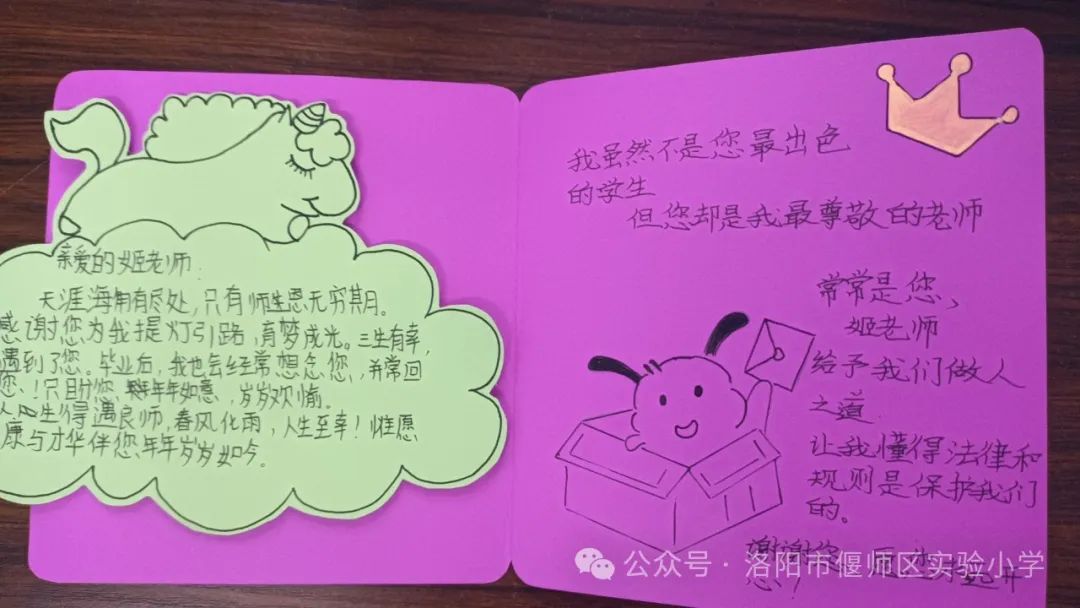 亲爱的姬老师:
天涯海角有尽处,只有师生恩无穷期。
感谢您为我提灯引路,育梦成光。三生有幸,
遇到了您。毕业后,我也会经常想念您,并常回
您!只助您年年如意,岁岁欢愉。
人生得遇良师,春风化雨,人生至幸!惟愿
康与才华伴您年年岁岁如今。
我虽然不是您最出色
的学生
但您却是我最尊敬的老师
常常是您,
姬老师
给予我们做人
之道
让我懂得法律和
规则是保护我们
的。
谢谢您
公众号·洛阳市偃师区实验小学